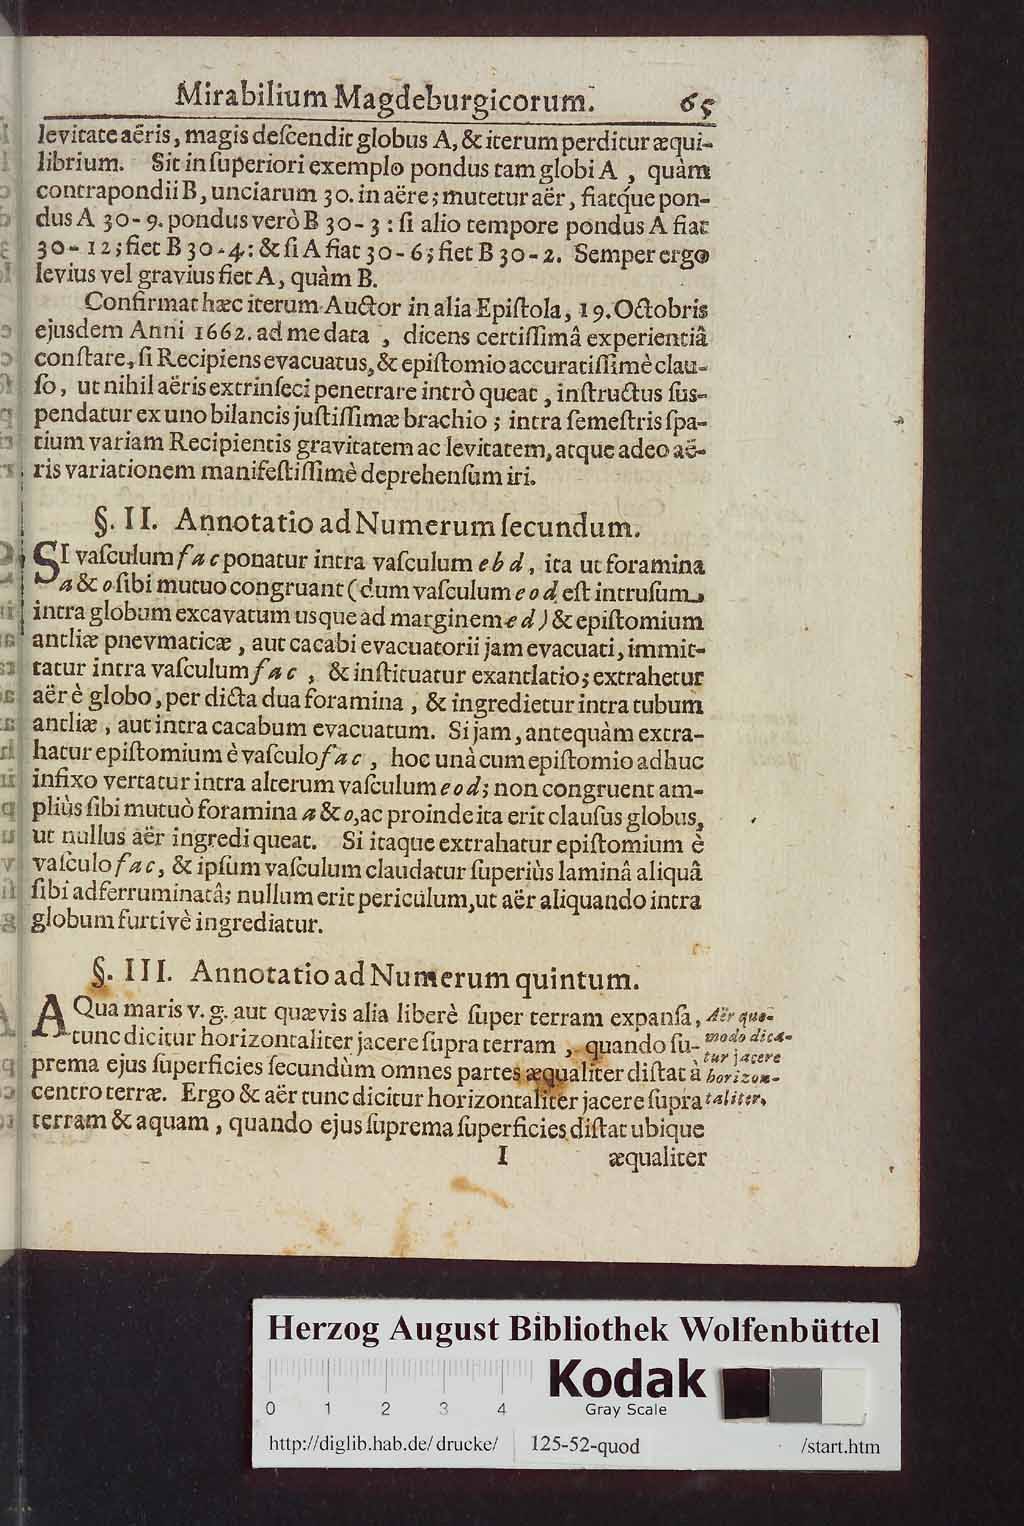 Mirabilium Magdeburgicorum. 65
levitate aëris, magis deſcendit globus A, & iterum perditur æqui-
librium. Sit in ſuperiori exemplo pondus tam globi A, quàm
contrapondii B, unciarum 30. in aëre; mutetur aër, fiatq́ue pon-
dus A 30-9. pondus verò B 30-3: ſi alio tempore pondus A fiat
30-12; fiet B 30-4: & ſi A fiat 30-6; fiet B 30-2. Semper ergo
levius vel gravius fiet A, quàm B.
Confirmat hæc iterum Auctor in alia Epiſtola, 19. Octobris
ejusdem Anni 1662. ad me data, dicens certiſſimâ experientiâ
conſtare, ſi Recipiens evacuatus, & epiſtomio accuratiſſimè clau-
ſo, ut nihil aëris extrinſeci penetrare intrò queat, inſtructus ſuſ-
pendatur ex uno bilancis juſtiſſimæ brachio; intra ſemeſtris ſpa-
tium variam Recipientis gravitatem ac levitatem, atque adeo aë-
ris variationem manifeſtiſſimè deprehenſum iri.
§. II. Annotatio ad Numerum ſecundum.
SI vaſculum fac ponatur intra vaſculum ebd, ita ut foramina
a & o ſibi mutuo congruant (dum vaſculum eod eſt intruſum
intra globum excavatum usque ad marginem ed) & epiſtomium
antliæ pnevmaticæ, aut cacabi evacuatorii jam evacuati, immit-
tatur intra vaſculum fac, & inſtituatur exantlatio; extrahetur
aër è globo, per dicta dua foramina, & ingredietur intra tubum
antliæ, aut intra cacabum evacuatum. Si jam, antequàm extra-
hatur epiſtomium è vaſculo fac, hoc unà cum epiſtomio adhuc
infixo vertatur intra alterum vaſculum eod; non congruent am-
pliùs ſibi mutuò foramina a & o, ac proinde ita erit clauſus globus,
ut nullus aër ingredi queat. Si itaque extrahatur epiſtomium è
vaſculo fac, & ipſum vaſculum claudatur ſuperiùs laminâ aliquâ
ſibi adferruminatâ; nullum erit periculum, ut aër aliquando intra
globum furtivè ingrediatur.
§. III. Annotatio ad Numerum quintum.
AQua maris v. g. aut quævis alia liberè ſuper terram expanſa,
tunc dicitur horizontaliter jacere ſupra terram, quando ſu-
prema ejus ſuperficies ſecundùm omnes partes æqualiter diſtat à
centro terræ. Ergo & aër tunc dicitur horizontaliter jacere ſupra
terram & aquam, quando ejus ſuprema ſuperficies diſtat ubique
I æqualiter
Aër quo-
modo dica-
tur jacere
horizon-
taliter.
Herzog August Bibliothek Wolfenbüttel
Kodak
Gray Scale
0 1 2 3 4
http://diglib.hab.de/drucke/ 125-52-quod /start.htm